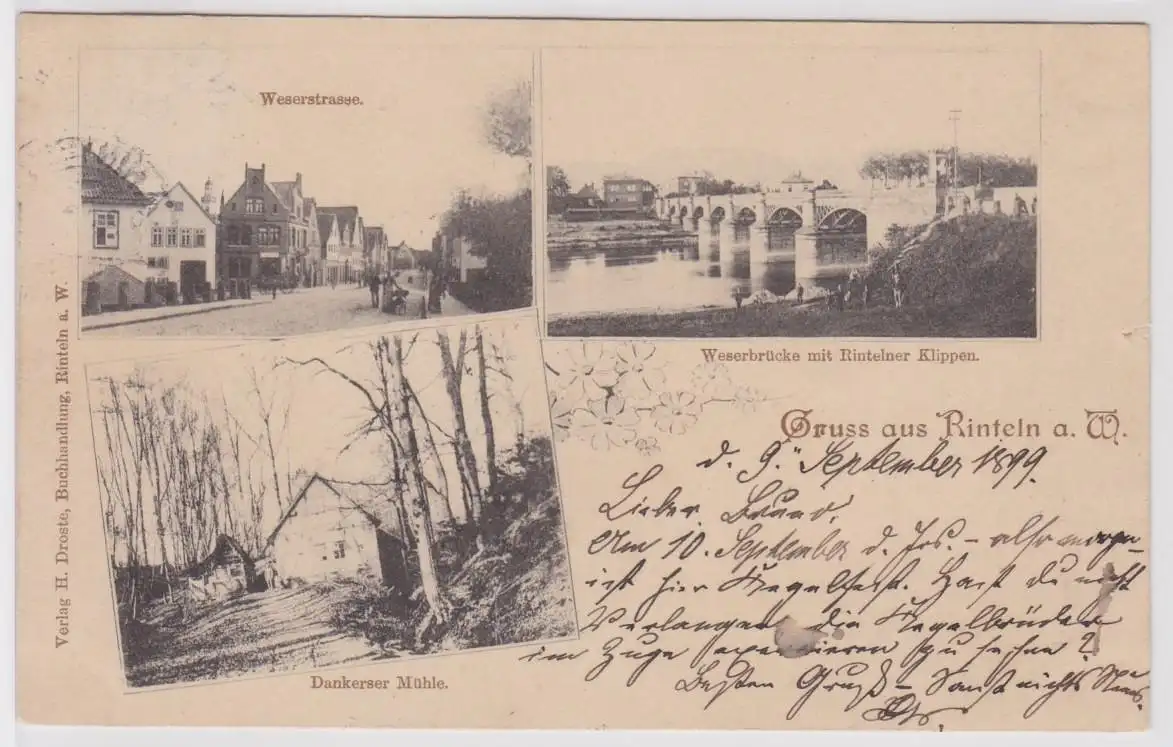 Weserstrasse.
Weserbrücke mit Rintelner Klippen.
Dankerser Mühle.
Verlag H. Droste, Buchhandlung, Rinteln a. W.
Gruss aus Rinteln a. W.
d. 9. September 1899.
Lieber Bruno,
Am 10. September d. Jrs. – also morgen
ist hier Kegelfest. Hast Du nicht
Verlangen die Kegelbrüder
im Zuge zu sehen?
Besten Gruß – Sonst nichts Neues.